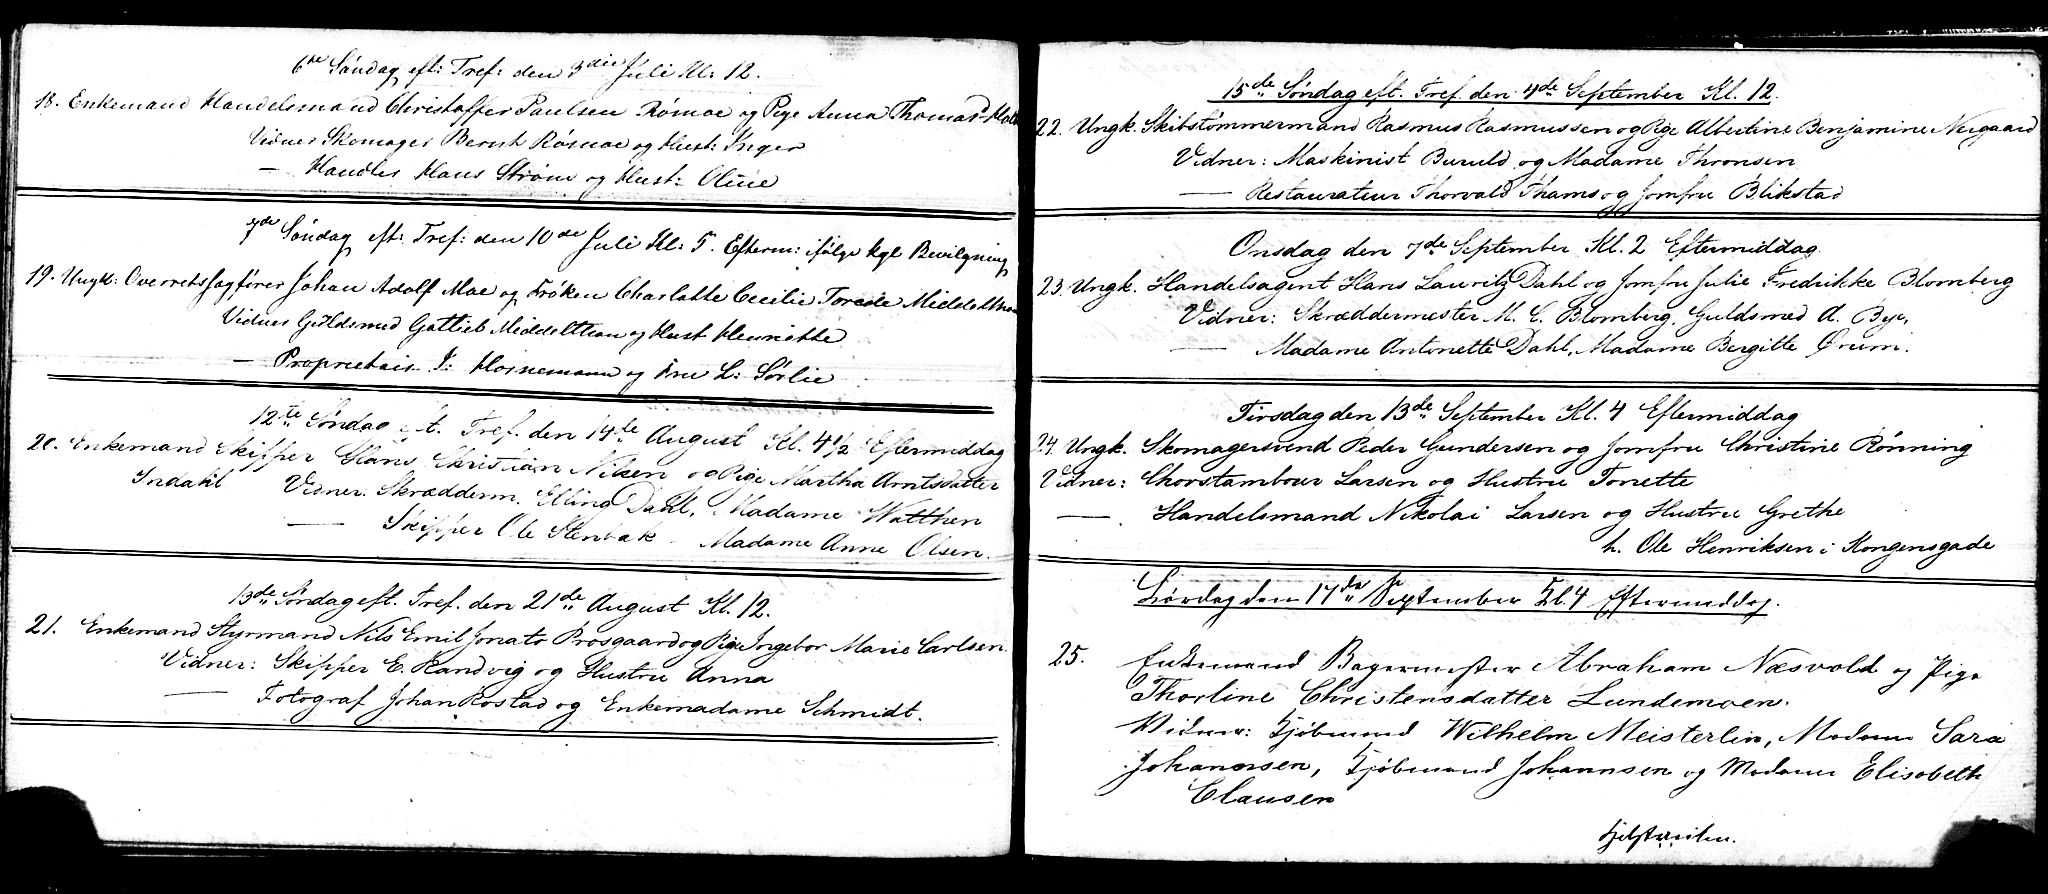 6te Søndag eft: Tref: den 3die Juli Kl: 12.
18. Enkemand Handelsmand Christoffer Paulsen Rømoe og Pige Anna Thomasd.
Vidner Skomager Bernt Røsmoe og Hust: Inger
— Handler Hans Strøm og Hust: Oline
7de Søndag eft: Tref: den 10de Juli Kl: 5. Efterm: ifølge kgl Bevilgning
19. Ungk: Overretssagfører Johan Adolf Moe og Frøken Charlotte Cecilie Middelthon
Vidner Guldsmed Gottlieb Middelthon og Hust Henriette
— Proprietair J: Hornemann og Fru L: Sørlie
12te Søndag eft. Tref. den 14te August Kl. 4½ Eftermiddag
20. Enkemand Skipper Hans Christian Nilsen og Pige Martha Arntsdatter
Indahl Vidner: Skrædderm. Elling Dahl, Madame Watthen
— Skipper Ole Stenbak - Madame Anne Olsen.
13de Søndag eft. Tref. den 21de August Kl. 12.
21. Enkemand Styrmand Nils Emil Jonato Brosgaard og Pige Ingebor Marie Carlsen.
Vidner: Skipper E. Randvig og Hustru Anna
— Fotograf Johan Rostad og Enkemadame Schmidt.
15de Søndag eft. Tref. den 4de September Kl. 12.
22. Ungk. Skibstømmermand Rasmus Rasmussen og Pige Albertine Benjamine Nergaard
Vidner: Maskinist Buruld og Madame Thronsen
— Restaurateur Thorvald Thams og Jomfru Blikstad
Onsdag den 7de September Kl. 2 Eftermiddag.
23. Ungk. Handelsagent Hans Lauritz Dahl og Jomfru Julie Fredrikke Blomberg
Vidner: Skræddermester M. C. Blomberg, Guldsmed A. Bye,
— Madame Antonette Dahl, Madame Bergitte Ørum.
Tirsdag den 13de September Kl. 4 Eftermiddag
24. Ungk. Skomagersvend Peder Gundersen og Jomfru Christine Rønning
Vidner: Chorstambour Larsen og Hustru Tonette
— . Handelsmand Nikolai Larsen og Hustru Grethe
h. Ole Henriksen i Kongensgade
Lørdag den 17de September Kl. 4 Eftermiddag.
25. Enkemand Bagermester Abraham Næsvold og Pige
Thorline Christensdatter Lundemoen.
Vidner: Kjøbmand Wilhelm Meisterlin, Madame Sara
Johannsen, Kjøbmand Johannsen og Madame Elisabeth
Clausen